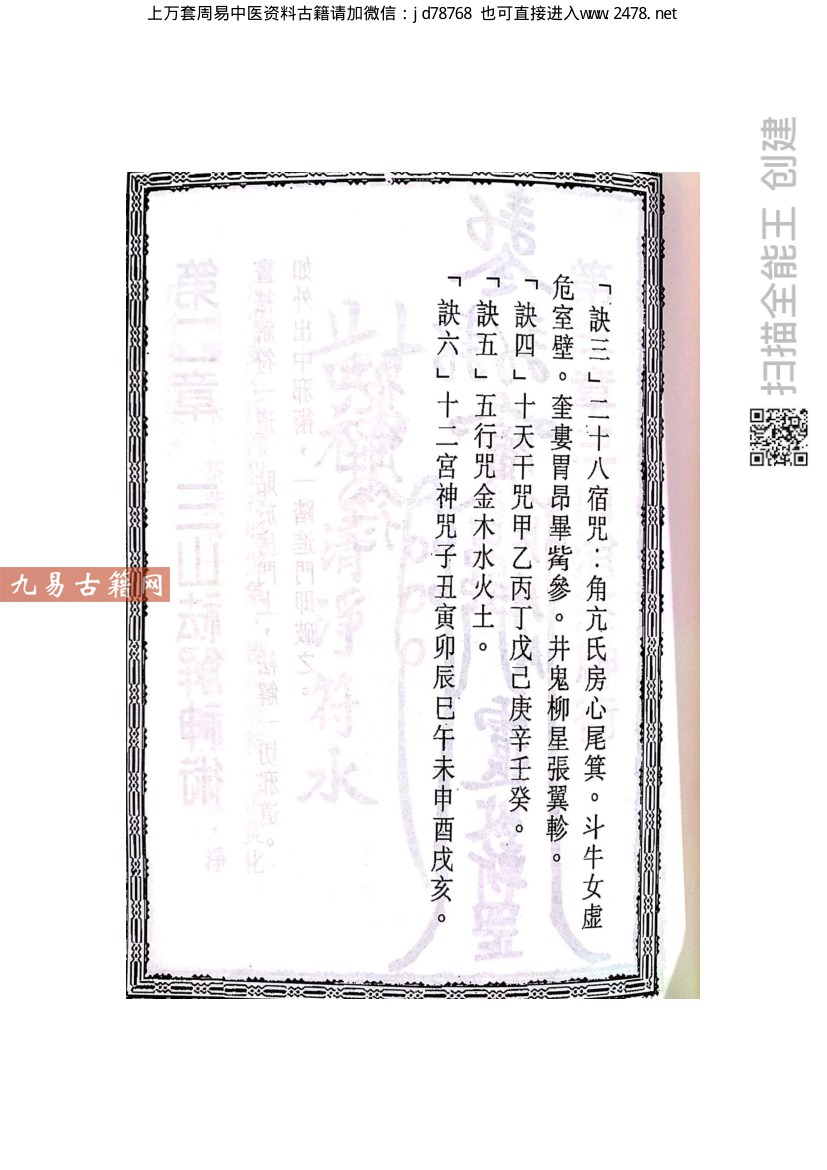 上万套周易中医资料古籍请加微信：jd78768 也可直接进入www.2478.net
「訣三」二十八宿咒：角亢氐房心尾箕。斗牛女虛
危室壁。奎婁胃昂畢觜參。井鬼柳星張翼軫。
「訣四」十天干咒甲乙丙丁戊己庚辛壬癸。
「訣五」五行咒金木水火土。
「訣六」十二宮神咒子丑寅卯辰巳午未申酉戌亥。
九易古籍网
扫描全能王 创建